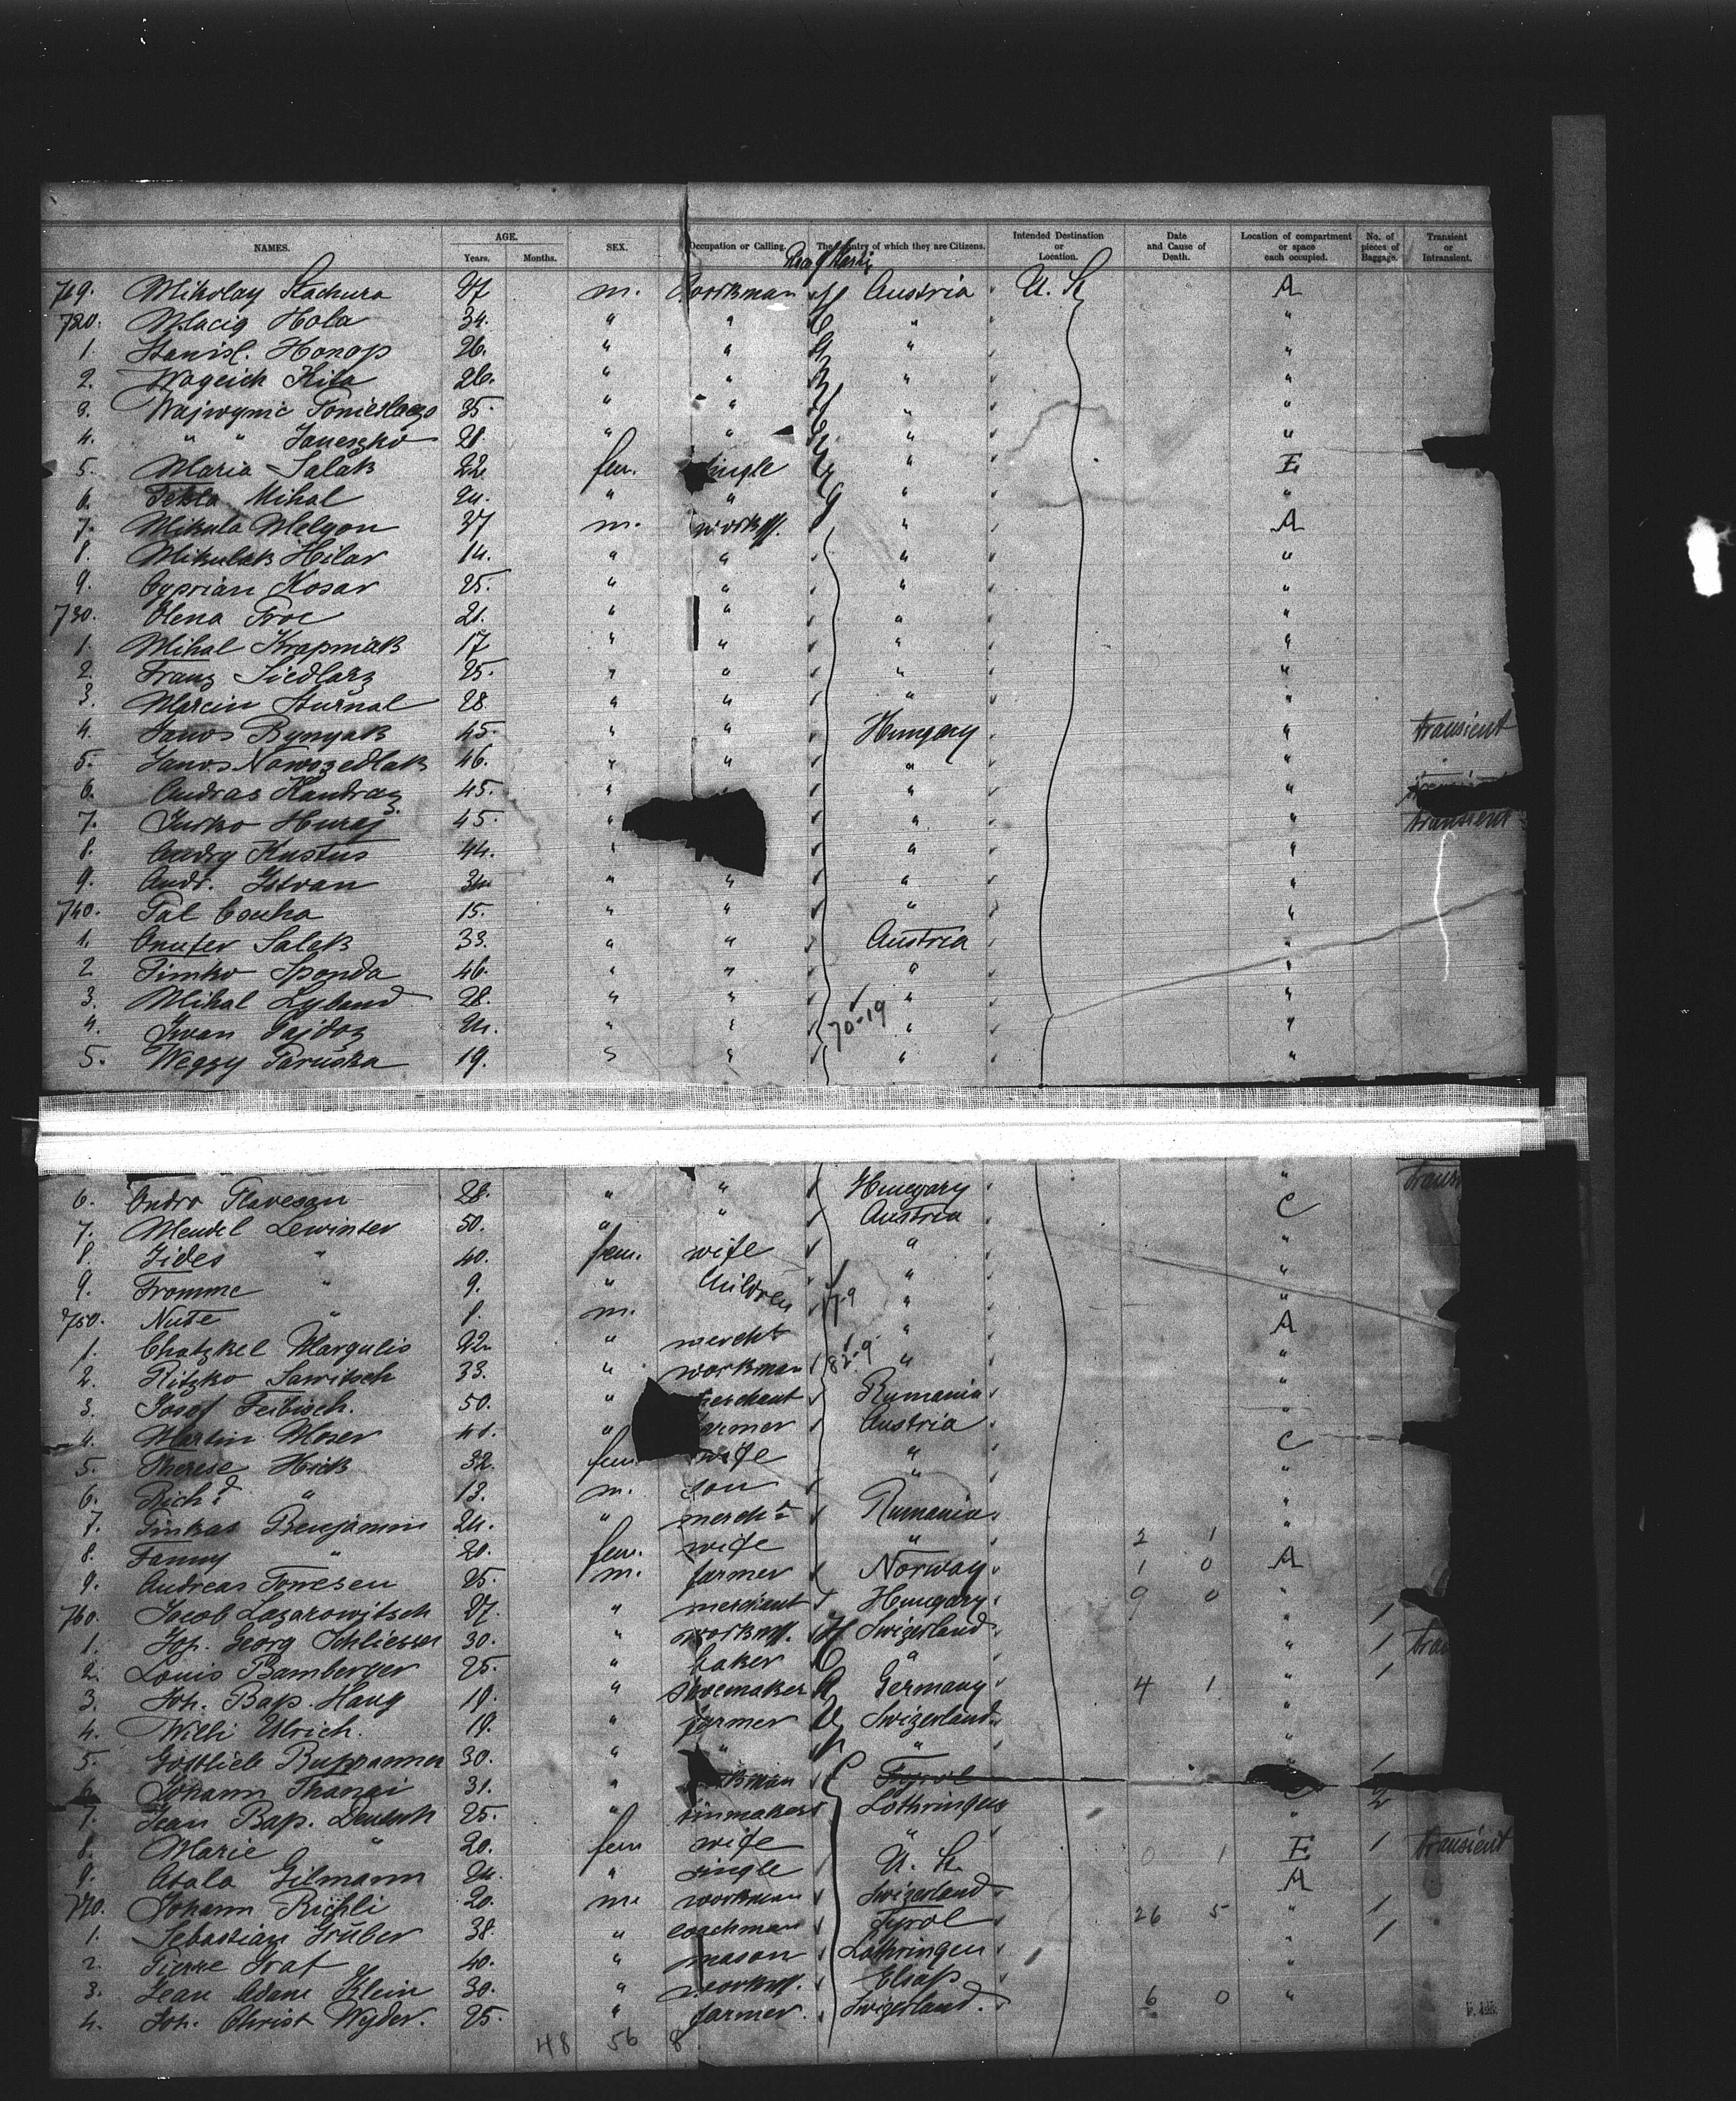 NAMES. AGE. Years. Months. SEX. Occupation or Calling. The Country of which they are Citizens. Intended Destination or Location. Date and Cause of Death. Location of compartment or space each occupied. No. of pieces of Baggage. Transient or Intransient.
719. Mikolay Stachura 27 m. Workman Austria U. St A
720. Macig Hola 34. " " " "
1. Stanisl. Honop 26. " " " "
2. Wogeich Kita 26. " " " "
3. 35. " " " "
4. " " Janeszko 21. " " " "
5. Maria Salak 22 fem. single " E
6. Tekla Mihal 24. " " " "
7. Mikula Melyon 37 m. workm. " A
8. Mikulak Hilar 14. " " " "
9. Cyprian Kosar 25. " " " "
730. Olena Proc 21. " " " "
1. Mihal Krapmiak 17 " " " "
2. Franz Siedlarz 25. " " " "
3. Marcin Sturnal 28. " " " "
4. Janos Bynyak 45. " " Hungary " transient
5. Janos Nowozedlak 46. " " " "
6. Andras Kandracz 45. " " "
7. Jurko Huraj 45. " " " transient
8. Andry Kustus 44. " " "
9. Andr. Istvan 34. " " " "
740. Pal Csuha 15. " " " "
1. Onufer Salek 33. " " Austria "
2. Timko Sponda 46. " " " "
3. Mihal 28. " " " "
4. Iwan Gajdoz 24. " " 70-19 " "
5. Paruska 19. " " " "
6. Andro 28. " " Hungary "
7. Mendel Lewinter 50. " " Austria C
8. Jides " 40. fem. wife " "
9. Fromme " 9. " Children " "
750. Nute " 8. m. 17-9 " "
1. Chatzkel Margulis 22 " mercht " A
2. Ritzko Sawitsch 33. " workman 82-9 " "
3. Josef Feibisch. 50. " merchant Rumania "
4. Martin Moser 41. " farmer Austria "
5. Therese Hick 32. fem wife " C
6. Richd. " 13. m. son " "
7. Pinkas Benjamin 24. " mercht Rumania "
8. Fanny " 20. fem. wife " 2 1 "
9. Andreas Torresen 25. m. farmer Norway 1 0 A
760. Jacob Lazarowitsch 27. " merchant Hungary 9 0 "
1. Joh. Georg Schliesser 30. " workm. Swizerland " 1
2. Louis Bamberger 25. " baker " " 1
3. Joh. Bap. Haug 19. " shoemaker Germany 4 1 " 1
4. Willi Ulrich. 19. " farmer Swizerland "
5. Gottlieb Rupanner 30. " " " "
6. Johann 31. " Tyrol 1
7. Jean Bap. 25. " Lothringen C 2
8. Marie " 20. fem wife " "
9. Atala Gilmann 24. " single U. St. 0 1 E 1 transient
770. Johann Richli 20. m. workman Swizerland A
1. Sebastian Grüber 38. " coachman Tyrol 26 5 " 1
2. Pierre Graf 40. " mason Lothringen " 1
3. Jean Adam Klein 30. " workm. Elsaß "
4. Joh. Christ Wyder. 25. " farmer. Swizerland. 6 0 "
48 56 8